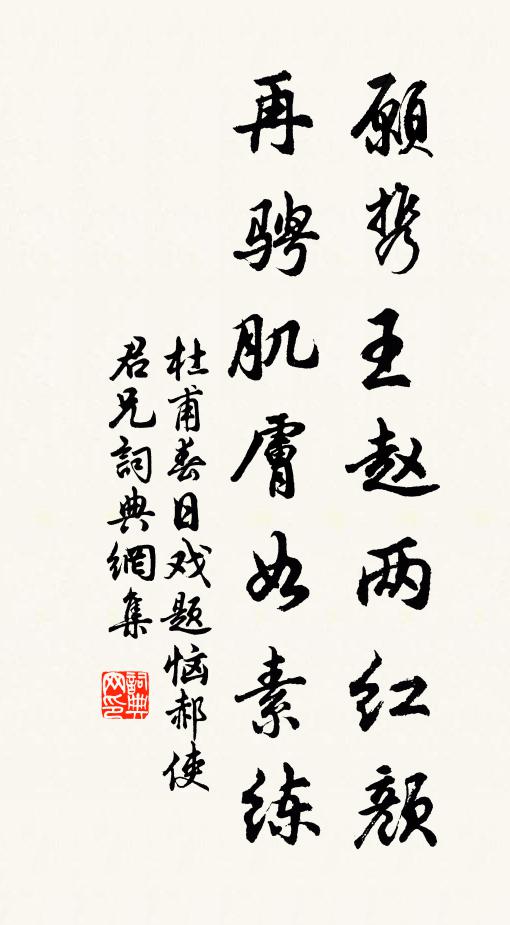 願携王赵两红颜
再骋肌膚如素练
杜甫春日戏题恼郝使
君兄詞典網集
詞典
网印